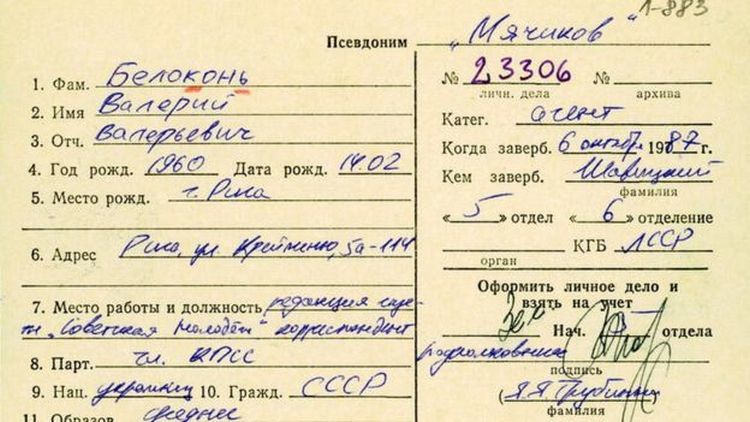 1-883
Псевдоним „Мячиков"
1. Фам. Белоконь
2. Имя Валерий
3. Отч. Валерьевич
4. Год рожд. 1960 Дата рожд. 14.02
5. Место рожд. г. Рига
6. Адрес Рига, ул. 5а-114
7. Место работы и должность редакция газе-
ты „Советская молодёжь" корреспондент
8. Парт. чл. КПСС
9. Нац. украинец 10. Гражд. СССР
11. Образов. среднее
№ 2,3306 № 
личн. дела архива
Катег. агент
Когда заверб. 6 октября 1987 г.
Кем заверб. Шавыцкий
фамилия
«5» отдел «6» отделение
КГБ ЛССР
орган
Оформить личное дело и
взять на учет
Зам. Нач. 5 отдела
подполковник
подпись
фамилия